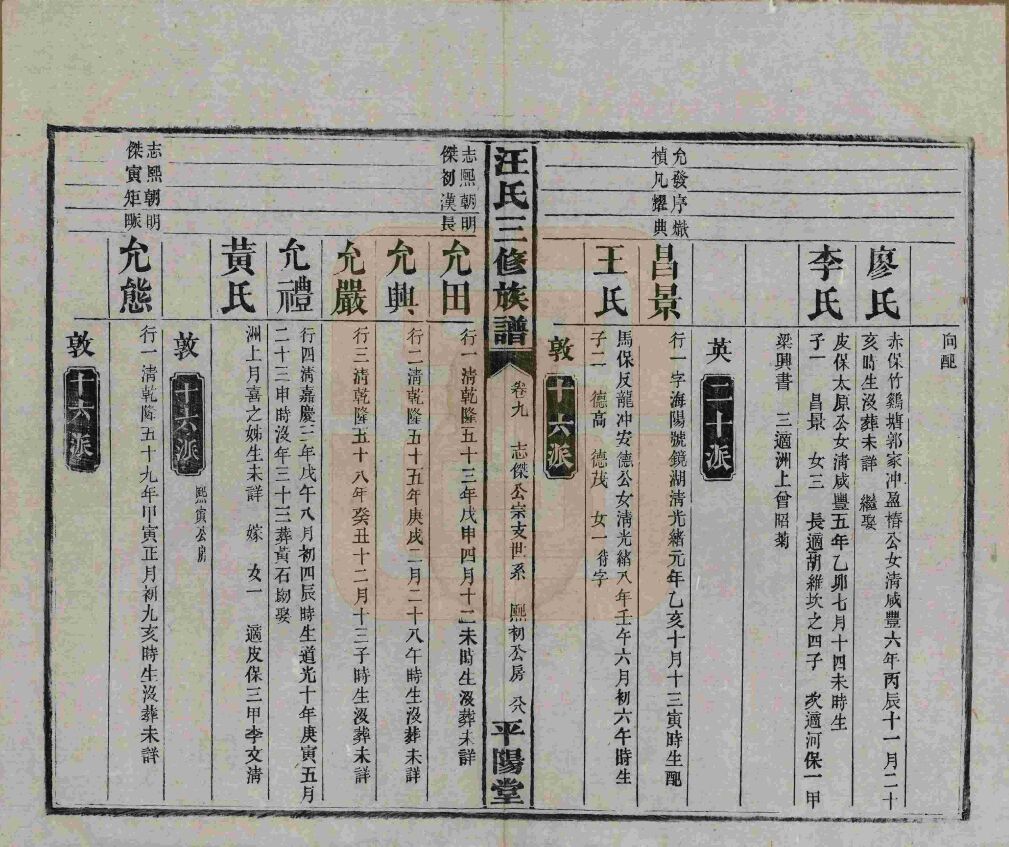 向配
廖氏
赤保竹鷄塘郭家冲盈椿公女清咸豐六年丙辰十一月二十
亥時生沒葬未詳　繼娶
李氏
皮保太原公女清咸豐五年乙卯七月十四未時生
子一　昌景　女三　長適胡維坎之四子　次適河保一甲
梁興書　三適洲上曾昭菊
英二十派
允發序熾
楨凡耀典
昌景
行一字海陽號鏡湖清光緒元年乙亥十月十三寅時生配
王氏
馬保反龍冲安德公女清光緒八年壬午六月初六午時生
子二　德高　德茂　女一待字
敦十六派
汪氏三修族譜
卷九　志傑公宗支世系　熙初公房
平陽堂
志熙朝明
傑初漢長
允田
行一清乾隆五十三年戊申四月十二未時生沒葬未詳
允興
行二清乾隆五十五年庚戌二月二十八午時生沒葬未詳
允嚴
行三清乾隆五十八年癸丑十二月十三子時生沒葬未詳
允禮
行四清嘉慶三年戊午八月初四辰時生道光十年庚寅五月
二十三申時沒年三十三葬黃石坳娶
黃氏
洲上月喜之姊生未詳　嫁　女一　適皮保三甲李文清
敦十六派
熙寅公房
志熙朝明
傑寅矩賑
允態
行一清乾隆五十九年甲寅正月初九亥時生沒葬未詳
敦十六派